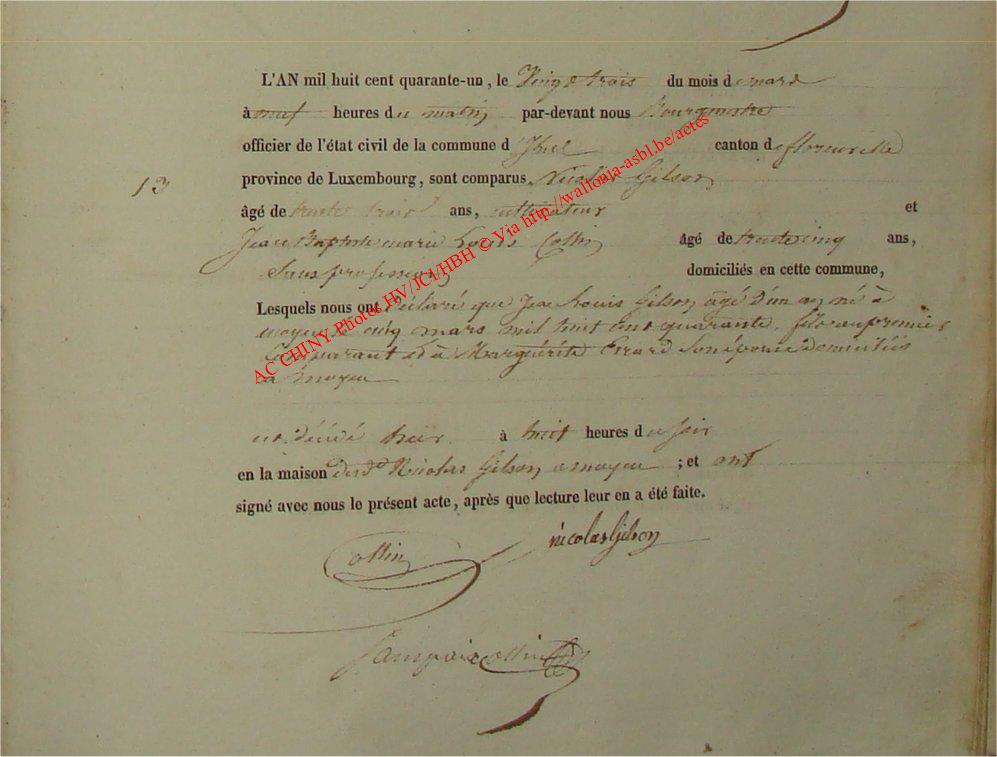 L'AN mil huit cent quarante-un, le Vingt trois du mois de mars
à neuf heures du matin par-devant nous Bourgmestre
officier de l'état civil de la commune d'Izel canton de florenville
13 province de Luxembourg, sont comparus Nicolas Gilson
âgé de trente trois ans, cultivateur et
Jean Baptiste marie Louis Collin âgé de trente cinq ans,
Sans profession domiciliés en cette commune,
Lesquels nous ont Déclaré que Jean Louis Gilson âgé d'un an né à
moyen le cinq mars mil huit cent quarante, fils au premier
Comparant et à Marguérite Errard son épouse domiciliés
à moyen
est décédé hier à huit heures du soir
en la maison dud Nicolas Gilson a moyen ; et ont
signé avec nous le présent acte, après que lecture leur en a été faite.
Collin nicolas Gilson
Collin
AC CHINY-Photos HV/JCl/HBH © Via http://wallonia-asbl.be/actes